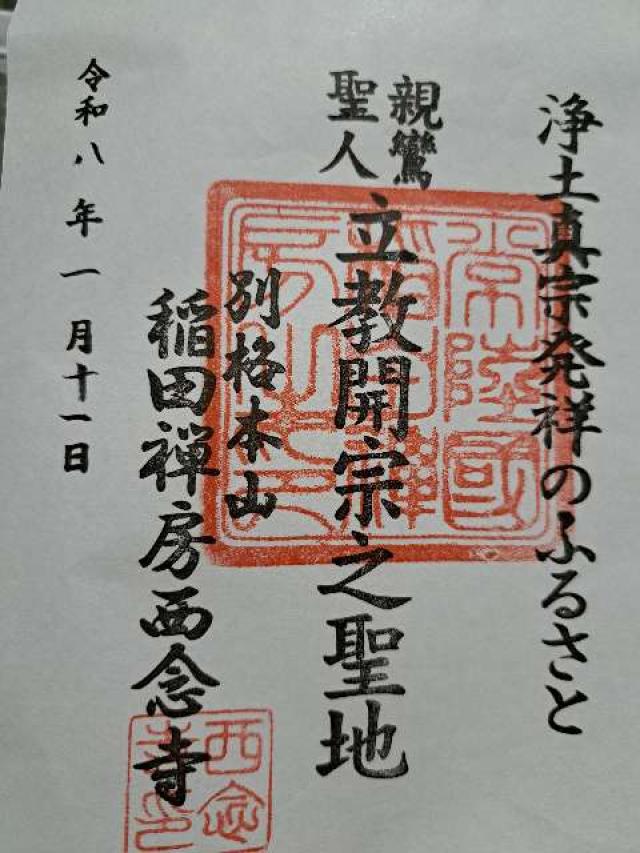 浄土真宗発祥のふるさと
親鸞
聖人
立教開宗之聖地
別格本山
稲田禅房西念寺
令和八年一月十一日
西念
寺印